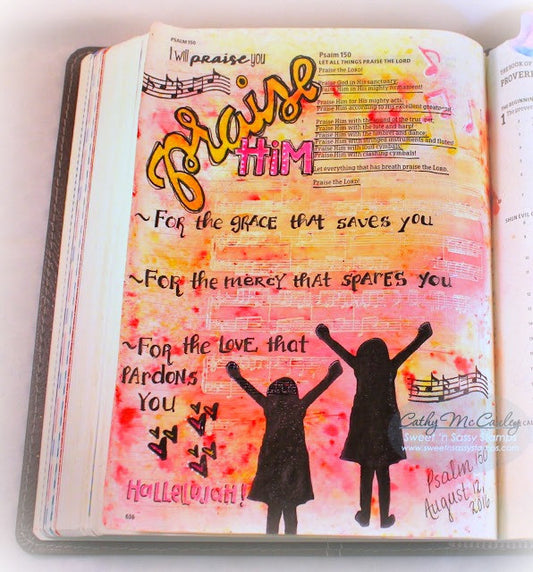 PSALM 150
I will praise you
Praise
HiM
Psalm 150
LET ALL THINGS PRAISE THE LORD
Praise the LORD!
Praise God in His sanctuary;
Praise Him in His mighty firmament!
Praise Him for His mighty acts;
Praise Him according to His excellent greatness!
Praise Him with the sound of the trumpet;
Praise Him with the lute and harp!
Praise Him with the timbrel and dance;
Praise Him with stringed instruments and flutes!
Praise Him with loud cymbals;
Praise Him with clashing cymbals!
Let everything that has breath praise the LORD.
Praise the LORD!
~FOR the GRACE that SAVES YOU
~FOR the MERCY that SPARES YOU
~FOR the LOVE that
PARDONS
YOU
HalleluJaH!
Cathy McCauley
Sweet 'n Sassy Stamps
www.sweetnsassystamps.com
Psalm 150
August 12,
2016
636
THE BOOK OF
PROVERB
THE BEGINNING
1 The prover
SHUN EVIL